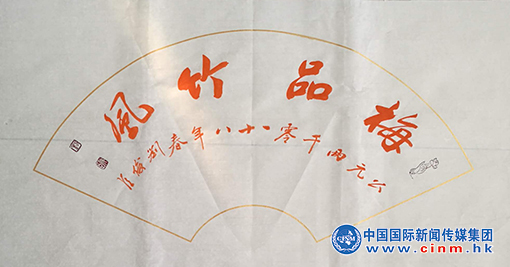 梅品竹風
公元兩千零一十八年春刘
中国国际新闻传媒集团
CINM
www.cinm.hk